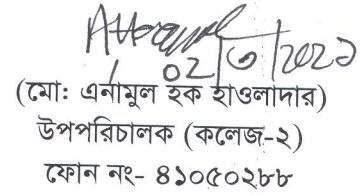 ০২/৩/২০২১
(মো: এনামুল হক হাওলাদার)
উপপরিচালক (কলেজ-২)
ফোন নং- ৪১০৫০২৮৮